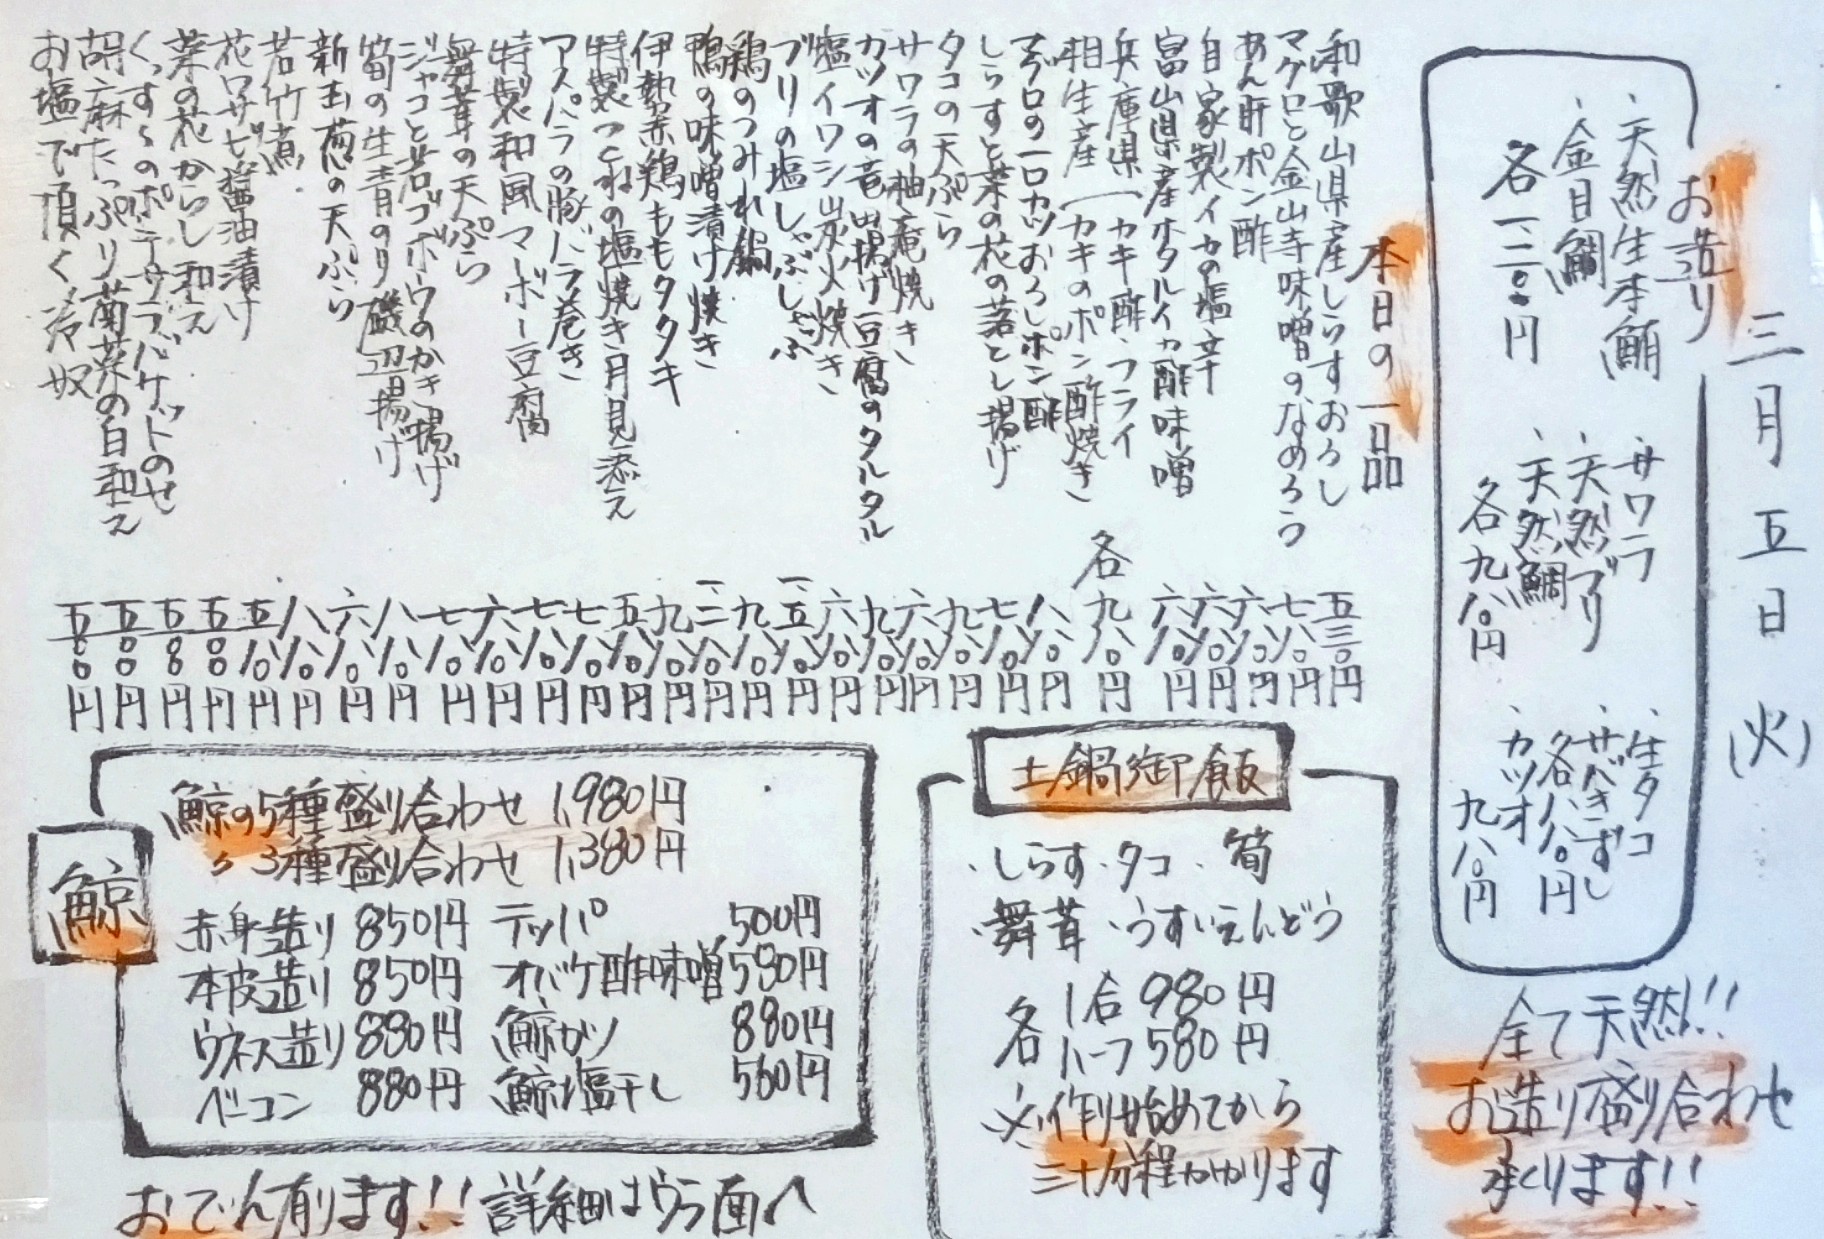 三月五日(火)
お造り
・天然生本鮪
・金目鯛
各一二八〇円
・サワラ
・天然ブリ
・天然鯛
各九八〇円
・生タコ
・きずし
各八八〇円
・カツオ
九八〇円
全て天然!!
お造り盛り合わせ
承ります!!
本日の一品
和歌山県産しらすおろし 五三〇円
マグロと金山寺味噌のなめろう 七八〇円
あん肝ポン酢 六八〇円
自家製イカの塩辛 六八〇円
富山県産ホタルイカ酢味噌 六八〇円
兵庫県 カキ酢・フライ
相生産 カキのポン酢焼き
各九八〇円
マグロの一口カツおろしポン酢 八八〇円
しらすと菜の花の落とし揚げ 七八〇円
タコの天ぷら 九八〇円
サワラの柚庵焼き 六八〇円
カツオの竜田揚げ豆腐のタルタル 九八〇円
塩イワシ炭火焼き 六八〇円
ブリの塩しゃぶしゃぶ 一五八〇円
鶏のつみれ鍋 九八〇円
鴨の味噌漬け焼き 一二八〇円
伊勢赤鶏ももタタキ 九八〇円
特製つくねの塩焼き月見添え 五八〇円
アスパラの豚バラ巻き 七八〇円
特製和風マーボー豆腐 七八〇円
舞茸の天ぷら 六八〇円
ジャコと若ゴボウのかき揚げ 七八〇円
筍の生青のり磯辺揚げ 八八〇円
新玉葱の天ぷら 六八〇円
若竹煮 八八〇円
花ワサビ醤油漬け 五八〇円
菜の花からし和え 五〇〇円
くんすくのポテサラバゲットのせ 五八〇円
胡麻たっぷり菊菜の白和え 五〇〇円
お塩で頂く冷奴 五〇〇円
土鍋御飯
・しらす・タコ・筍
・舞茸・うすいえんどう
各1合 980円
各ハーフ 580円
※作り始めてから
三十分程かかります
鯨
鯨の5種盛り合わせ 1,980円
〃 3種盛り合わせ 1,380円
赤身造り 850円 テッパ 500円
本皮造り 850円 オバケ酢味噌 580円
ウネス造り 880円 鯨カツ 880円
ベーコン 880円 鯨塩干し 560円
おでん有ります!! 詳細はウラ面へ